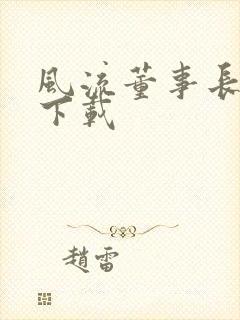 風流董事長
下載
趙雷